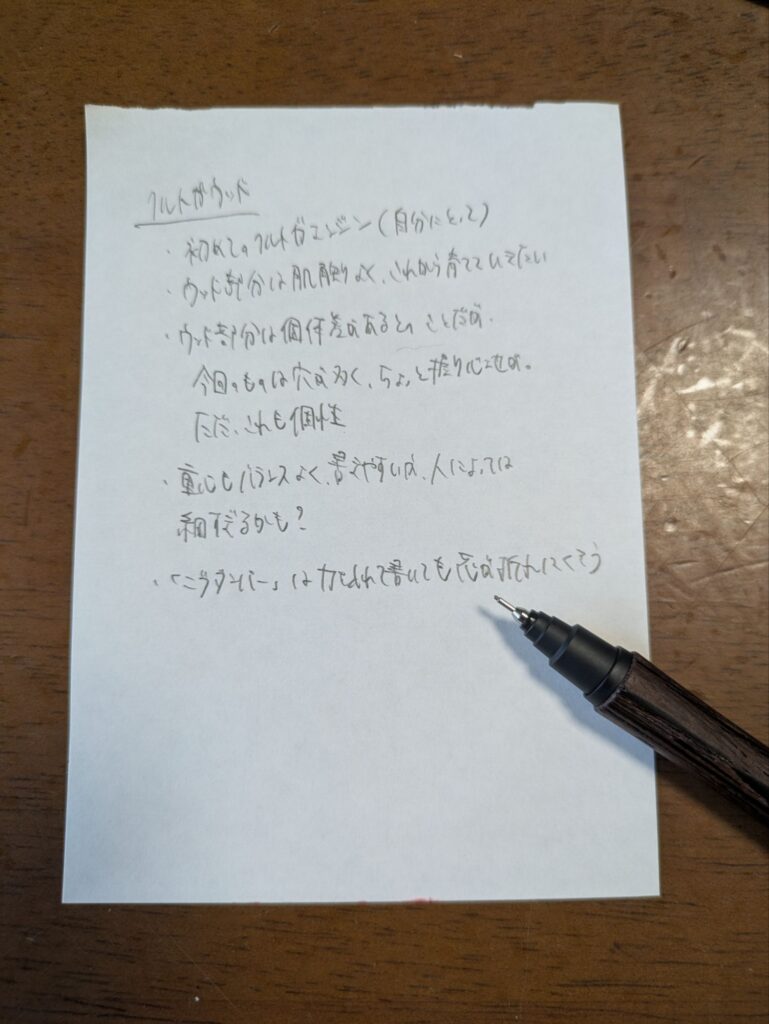 クルトガウッド
・初めてのクルトガエンジン(自分にとって)
・ウッド部分は肌触りよく、これから育てていきたい
・ウッド部分は個体差があるとのことだが、
今回のものは穴が多く、ちょっと握り心地が。
ただ、これも個性
・重心もバランスよく、書きやすいが、人によっては
細すぎるかも?
・「ニブダンパー」は力入れて書いても芯が折れにくそう